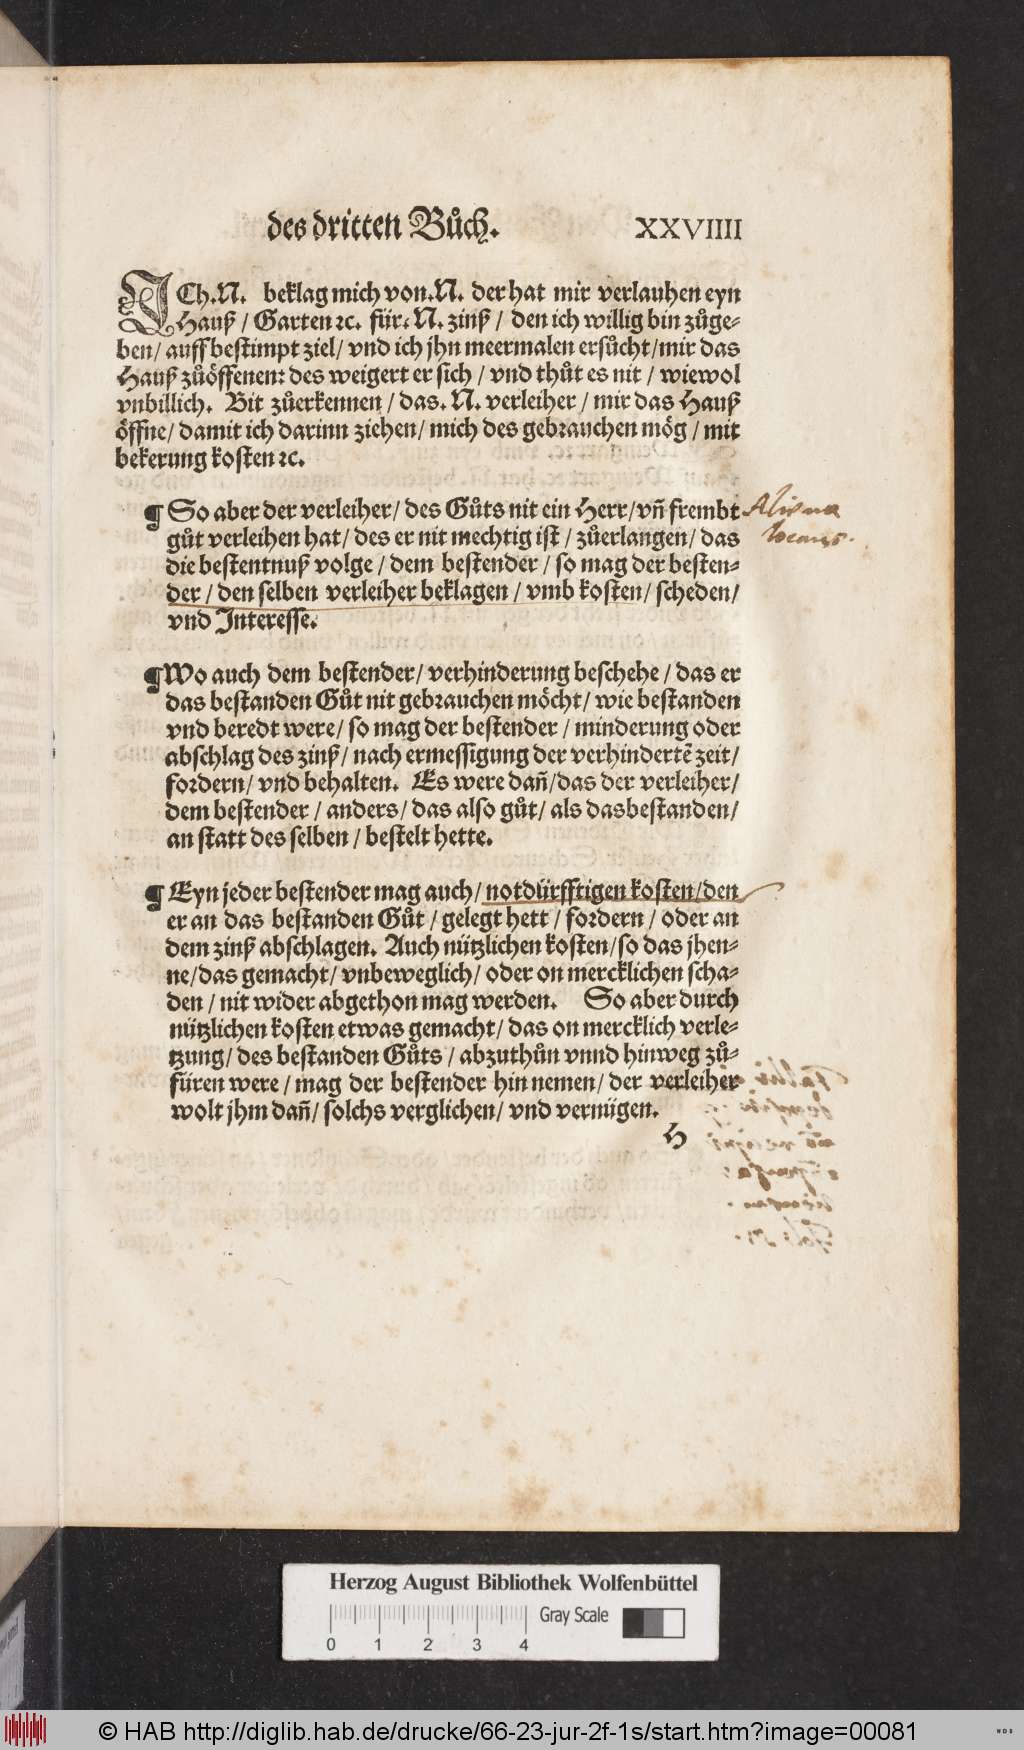 des dritten Bůch. XXVIIII
ICh. N. beklag mich von. N. der hat mir verlauhen eyn
Hauß / Garten ꝛc. für. N. zinß / den ich willig bin zůge-
ben / auff bestimpt ziel / vnd ich jhn meermalen ersůcht / mir das
Hauß zůöffenen: des weigert er sich / vnd thůt es nit / wiewol
vnbillich. Bit zůerkennen / das. N. verleiher / mir das Hauß
öffne / damit ich darinn ziehen / mich des gebrauchen mög / mit
bekerung kosten ꝛc.
¶ So aber der verleiher / des Gůts nit ein Herr / vñ frembt
gůt verleihen hat / des er nit mechtig ist / zůerlangen / das
die bestentnuß volge / dem bestender / so mag der besten-
der / den selben verleiher beklagen / vmb kosten / scheden /
vnd Interesse.
Aliena
locans.
¶ Wo auch dem bestender / verhinderung beschehe / das er
das bestanden Gůt nit gebrauchen möcht / wie bestanden
vnd beredt were / so mag der bestender / minderung oder
abschlag des zinß / nach ermessigung der verhindertẽ zeit /
fordern / vnd behalten. Es were dañ / das der verleiher /
dem bestender / anders / das also gůt / als dasbestanden /
an statt des selben / bestelt hette.
¶ Eyn jeder bestender mag auch / notdürfftigen kosten / den
er an das bestanden Gůt / gelegt hett / fordern / oder an
dem zinß abschlagen. Auch nützlichen kosten / so das jhen-
ne / das gemacht / vnbeweglich / oder on mercklichen scha-
den / nit wider abgethon mag werden. So aber durch
nützlichen kosten etwas gemacht / das on mercklich verle-
tzung / des bestanden Gůts / abzuthůn vnnd hinweg zů-
füren were / mag der bestender hin nemen / der verleiher
wolt jhm dañ / solchs verglichen / vnd vernügen.
H
Herzog August Bibliothek Wolfenbüttel
Gray Scale
0 1 2 3 4
© HAB http://diglib.hab.de/drucke/66-23-jur-2f-1s/start.htm?image=00081